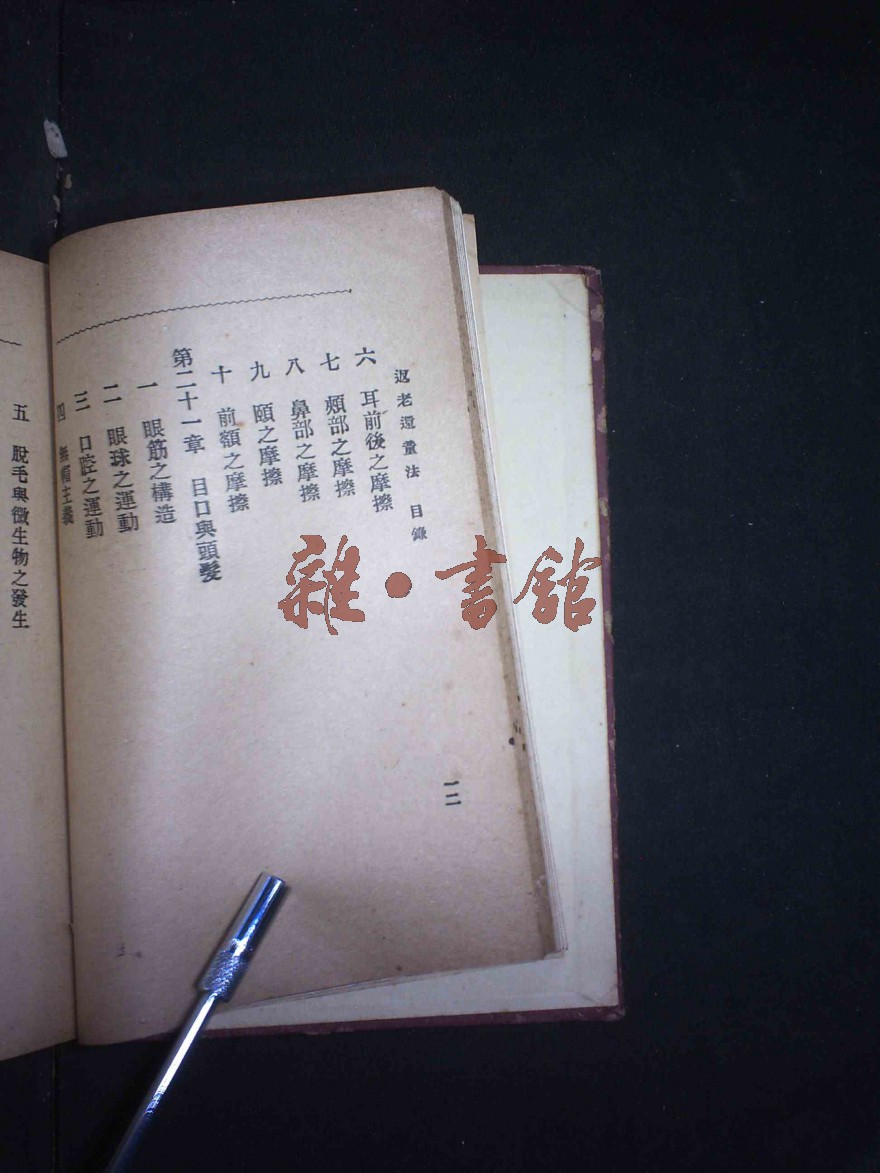 返老還童法 目錄
六 耳前後之摩擦
七 頰部之摩擦
八 鼻部之摩擦
九 頤之摩擦
十 前額之摩擦
第二十一章 目口與頭髮
一 眼筋之構造
二 眼球之運動
三 口腔之運動
四 無帽主義
一二
五 脫毛與微生物之發生
雜·書館